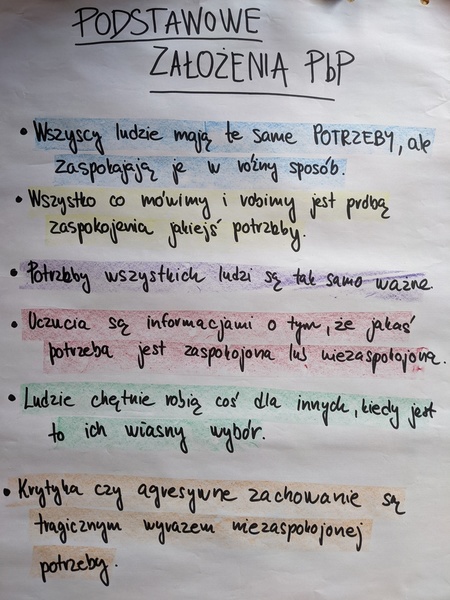 PODSTAWOWE
ZAŁOŻENIA PbP
• Wszyscy ludzie mają te same POTRZEBY, ale
zaspokajają je w różny sposób.
• Wszystko co mówimy i robimy jest próbą
zaspokojenia jakiejś potrzeby.
• Potrzeby wszystkich ludzi są tak samo ważne.
• Uczucia są informacjami o tym, że jakaś
potrzeba jest zaspokojona lub niezaspokojona.
• Ludzie chętnie robią coś dla innych, kiedy jest
to ich własny wybór.
• Krytyka czy agresywne zachowanie są
tragicznym wyrazem niezaspokojonej
potrzeby.